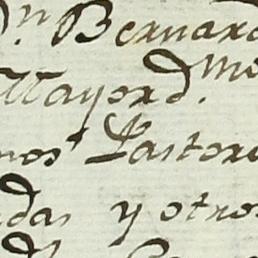 D.ⁿ Bernard
Mayord.ᵐᵒ
nos Pastore
das y otros